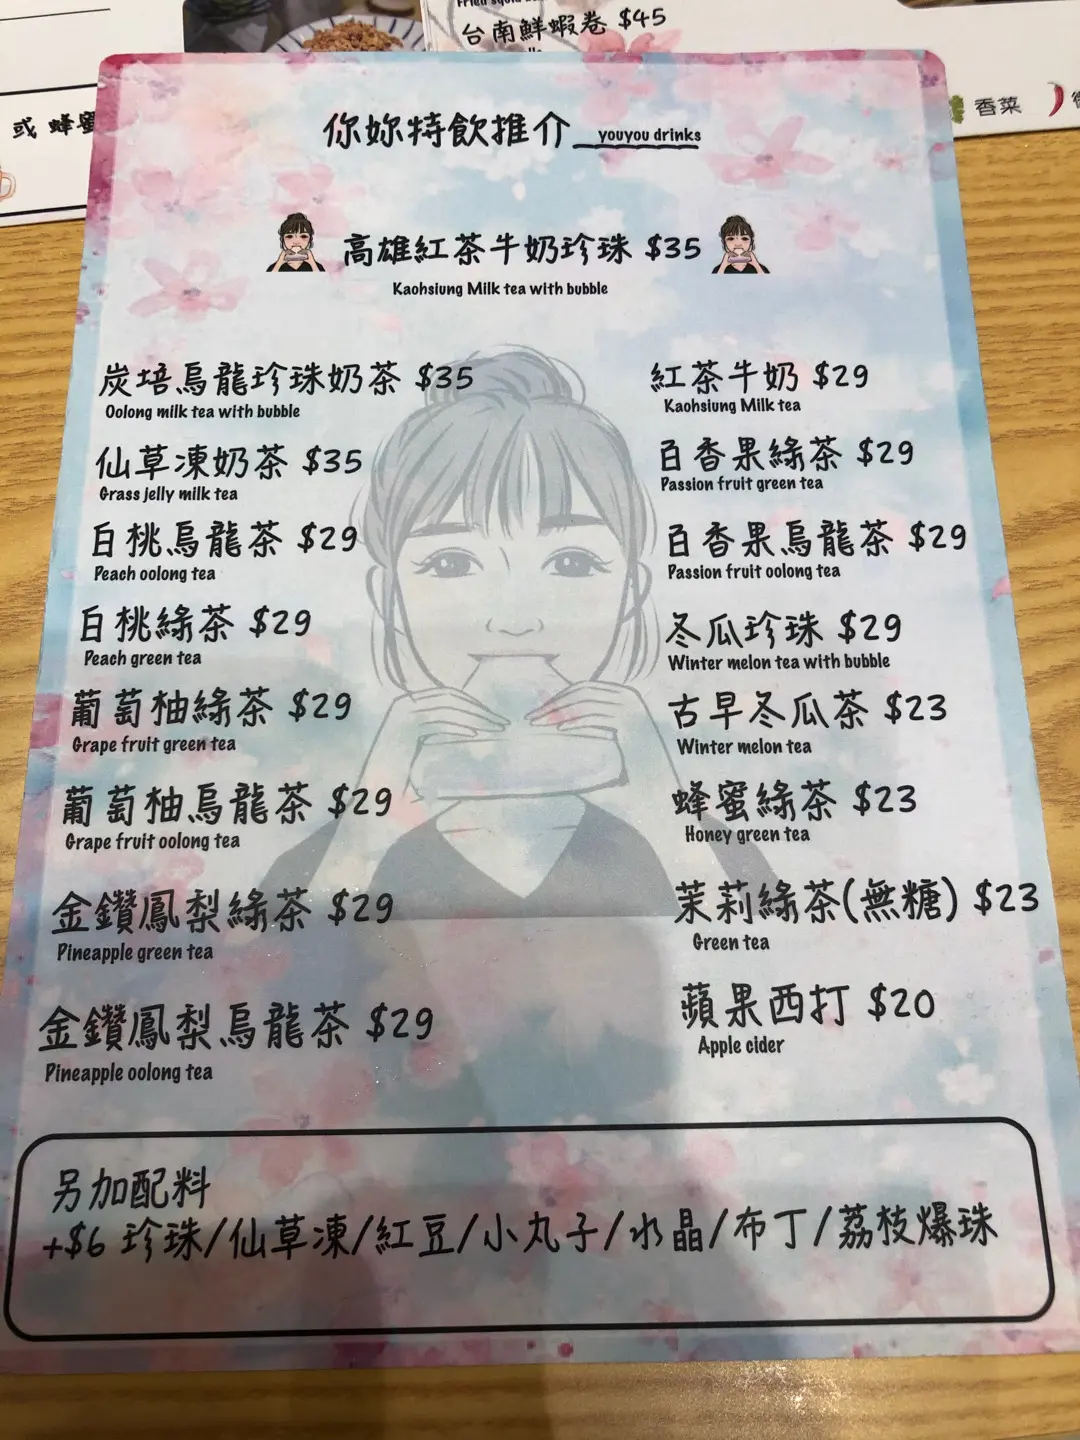 台南鮮蝦卷 $45
或 蜂蜜
香菜
你妳特飲推介 youyou drinks
高雄紅茶牛奶珍珠 $35
Kaohsiung Milk tea with bubble
炭培烏龍珍珠奶茶 $35
Oolong milk tea with bubble
仙草凍奶茶 $35
Grass jelly milk tea
白桃烏龍茶 $29
Peach oolong tea
白桃綠茶 $29
Peach green tea
葡萄柚綠茶 $29
Grape fruit green tea
葡萄柚烏龍茶 $29
Grape fruit oolong tea
金鑽鳳梨綠茶 $29
Pineapple green tea
金鑽鳳梨烏龍茶 $29
Pineapple oolong tea
紅茶牛奶 $29
Kaohsiung Milk tea
百香果綠茶 $29
Passion fruit green tea
百香果烏龍茶 $29
Passion fruit oolong tea
冬瓜珍珠 $29
Winter melon tea with bubble
古早冬瓜茶 $23
Winter melon tea
蜂蜜綠茶 $23
Honey green tea
茉莉綠茶(無糖) $23
Green tea
蘋果西打 $20
Apple cider
另加配料
+$6 珍珠/仙草凍/紅豆/小丸子/水晶/布丁/荔枝爆珠